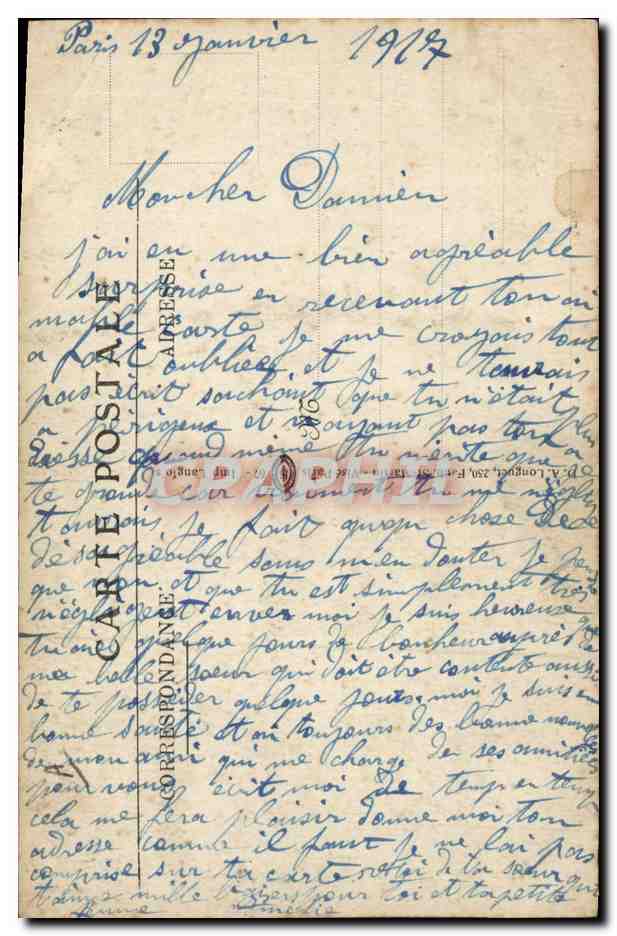 Paris 13 Janvier 1917
Mon cher Damien
j'ai eu une bien agréable
surprise en recevant ton ai
mable carte je me croyais tout
a fait oubliée et je ne t'avais
pas écrit sachant que tu n'était
a périgeux et n'ayant pas ton a
dresse quand même tu mérite que
te gronde car vraiment tu me néglige
t'aurais je fait quequ chose De
désagréable sans m'en douter je pense
que non et que tu est simplement très
négligent envers moi je suis heureuse que
tu aies quelque jours de bonheur auprès de
ma belle soeur qui doit etre contente aussi
de te posséder quelque jours. moi je suis en
bonne santé et ai toujours des bonne nouvelles
de mon ami qui me charge de ses amitiées
pour vous écrit moi de temp en temp
cela me fera plaisir donne moi ton
adresse comme il faut je ne l'ai pas
comprise sur ta carte reçoi de ta soeur qui
t'aime mille baisers pour toi et ta petite
femme
CARTE POSTALE
CORRESPONDANCE
ADRESSE
D. A. Longuet, 250, Faub. St-Martin - Visé Paris 767 - Imp. Langlois